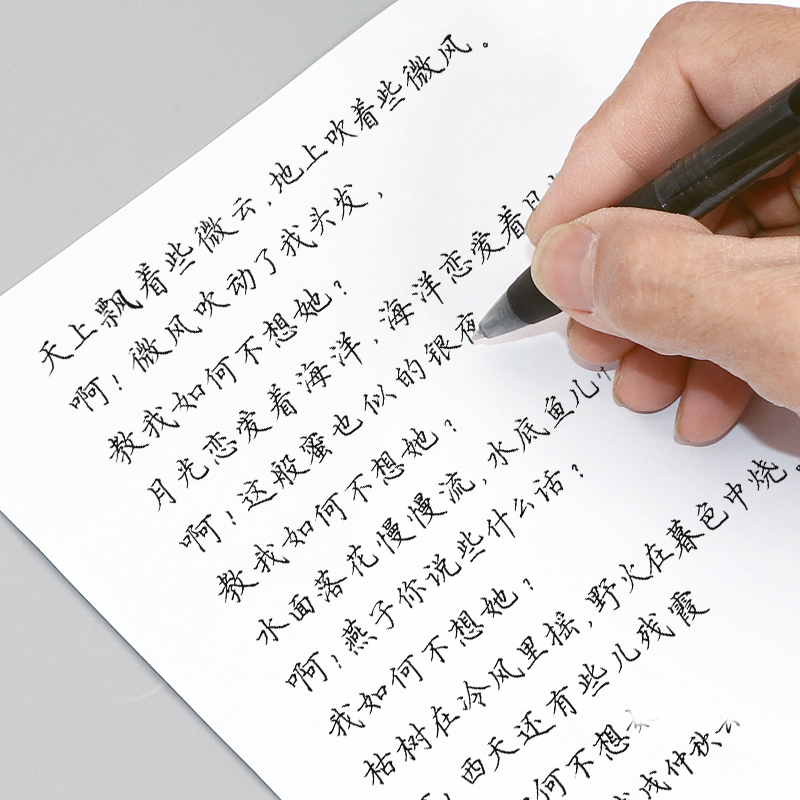 天上飘着些微云,地上吹着些微风。
啊!微风吹动了我头发,
教我如何不想她?
月光恋爱着海洋,海洋恋爱着月
啊!这般蜜也似的银夜
教我如何不想她?
水面落花慢慢流,水底鱼儿
啊!燕子你说些什么话?
我如何不想她?
枯树在冷风里摇,野火在暮色中烧。
西天还有些儿残霞
何不想
戌仲秋云